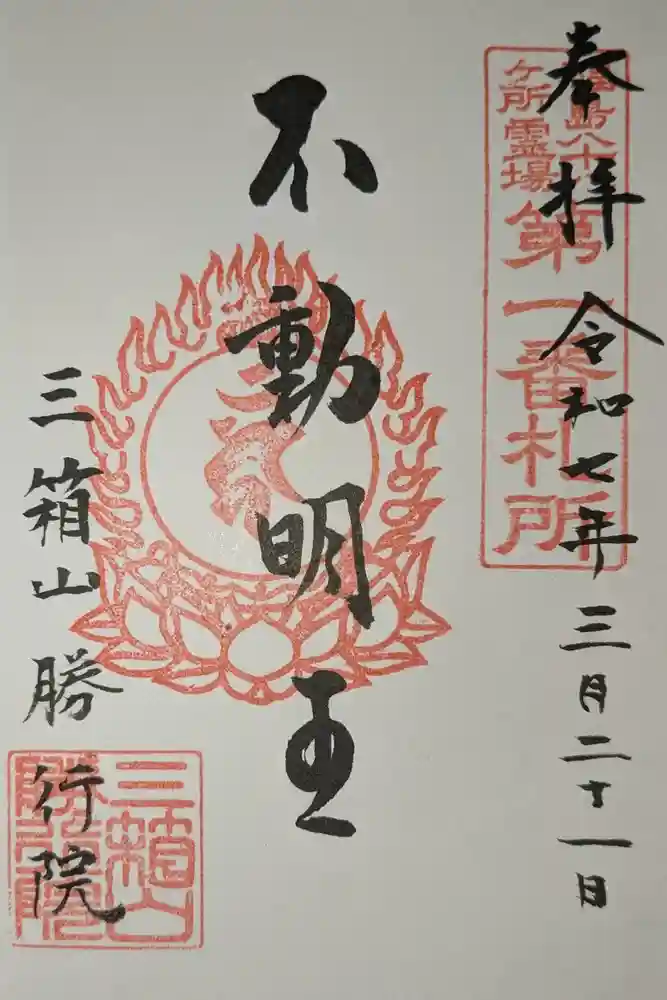 奉拝 令和七年三月二十一日
福島八十八
ケ所霊場
第一番札所
不動明王
三箱山勝行院
三箱山
勝行院